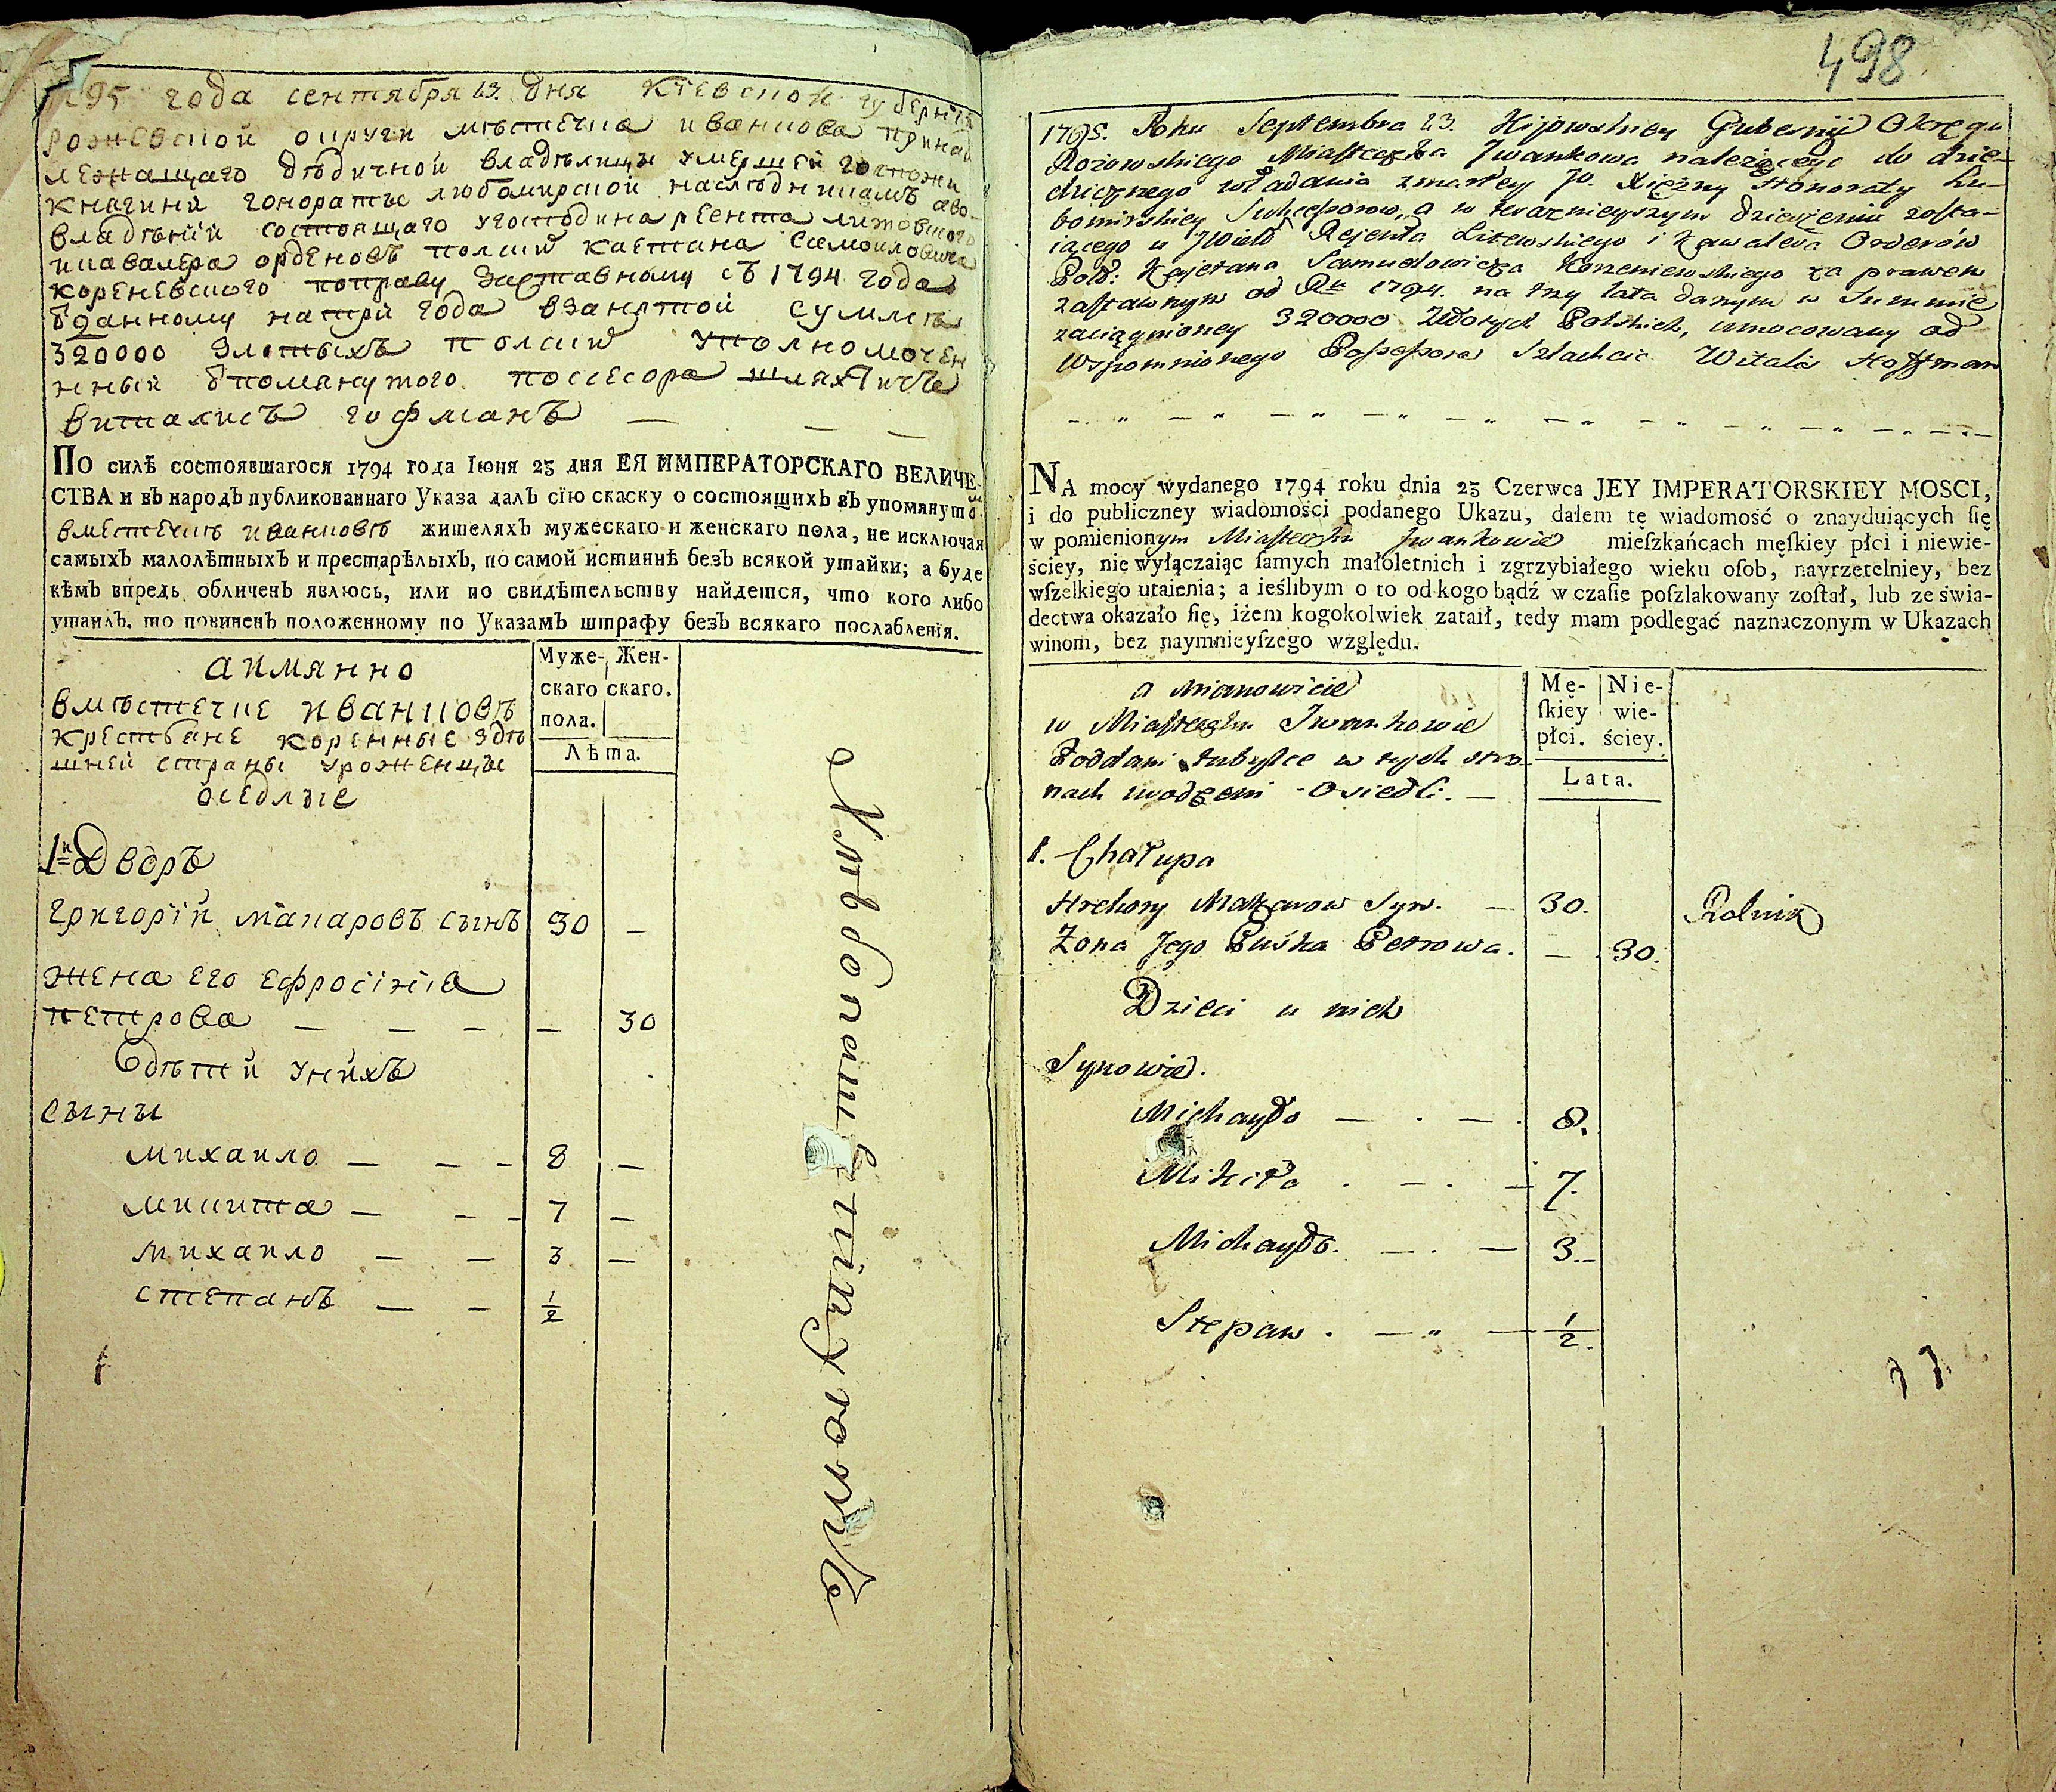 1795 года сентября 23. дня Кіевской губерніи
рожевской округи мѣстечка иванкова принад
лежащаго дѣдичной владѣлицы умершей госпожи
княгини гонораты любомирской наслѣдникамъ аво
владѣніи состоящаго угосподина реента литовского
икавалера орденовъ полскихъ каетана самоиловича
кореневского поправу заставному съ 1794 года
данному натри года взанятой суммѣ
320000 злотыхъ полскихъ уполномочен
нный упомянутого поссесора шляхтичъ
виталисъ гофманъ — — —
ПО силѣ состоявшагося 1794 года Іюня 23 дня ЕЯ ИМПЕРАТОРСКАГО ВЕЛИЧЕ-
СТВА и въ народъ публикованнаго Указа далъ сію скаску о состоящихъ въ упомянутомъ
вместечкѣ иванковѣ жителяхъ мужескаго и женскаго пола, не исключая
самыхъ малолѣтныхъ и престарѣлыхъ, по самой истиннѣ безъ всякой утайки; а буде
кѣмъ впредь обличенъ явлюсь, или по свидѣтельству найдется, что кого либо
утаилъ, то повиненъ положенному по Указамъ штрафу безъ всякаго послабленія.
аимянно
вмѣстечке иванковѣ
крестьяне коренные здѣ
шней страны урожденцы
оседлые
Муже- Жен-
скаго скаго.
пола.
Лѣта.
1й Дворъ
григорій макаровъ сынъ 30 —
жена его ефросінія
петрова — — — — 30
дѣтей унихъ
сыны
михаило — — — 8 —
микита — — — 7 —
михаило — — 3 —
степанъ — — ½
498
1795. Roku Septembra 23. Kijowskiey Gubernij Okręgu
Rożowskiego Miasteczka Jwankowa należącego do dzie-
dzicznego władania zmarłey JO. Xiężny Honoraty Lu-
bomirskiey Sukcessorow, a w teraznieyszym dzierżeniu zosta-
iącego u JWielo Rejenta Litewskiego i Kawalera Orderów
Pols: Kajetana Samuelowicza Korzeniewskiego za prawem
zastawnym od Ru 1794. na trzy lata danym w Summie
zaciągnioney 320000 Złotych Polskich, umocowany od
Wspomnionego Possessora Szlachcic Witalis Hoffman
NA mocy wydanego 1794 roku dnia 23 Czerwca JEY IMPERATORSKIEY MOSCI,
i do publiczney wiadomości podanego Ukazu, dałem tę wiadomość o znayduiących ſię
w pomienionym Miasteczku Jwankowie mieſzkańcach męſkiey płci i niewie-
ściey, nie wyłączaiąc ſamych małoletnich i zgrzybiałego wieku oſob, nayrzetelniey, bez
wſzelkiego utaienia; a ieślibym o to od kogo bądź w czaſie poſzlakowany zoſtał, lub ze świa-
dectwa okazało ſię, iżem kogokolwiek zataił, tedy mam podlegać naznaczonym w Ukazach
winom, bez naymnieyſzego względu.
a mianowicie
w Miasteczku Jwankowie
Poddani tubylce w tych stro-
nach urodzeni Osiedli. —
Mę- Nie-
ſkiey wie-
płci. ściey.
Lata.
1. Chałupa
Hrehory Makarow Syn. — 30. Rolnik
Żona Jego Pruska Petrowa. — 30.
Dzieci u nich
Synowie.
Michayło — . — . 8.
Mikita . — . — 7.
Michayło. — . — 3.—
Stepan . — „ — ½.